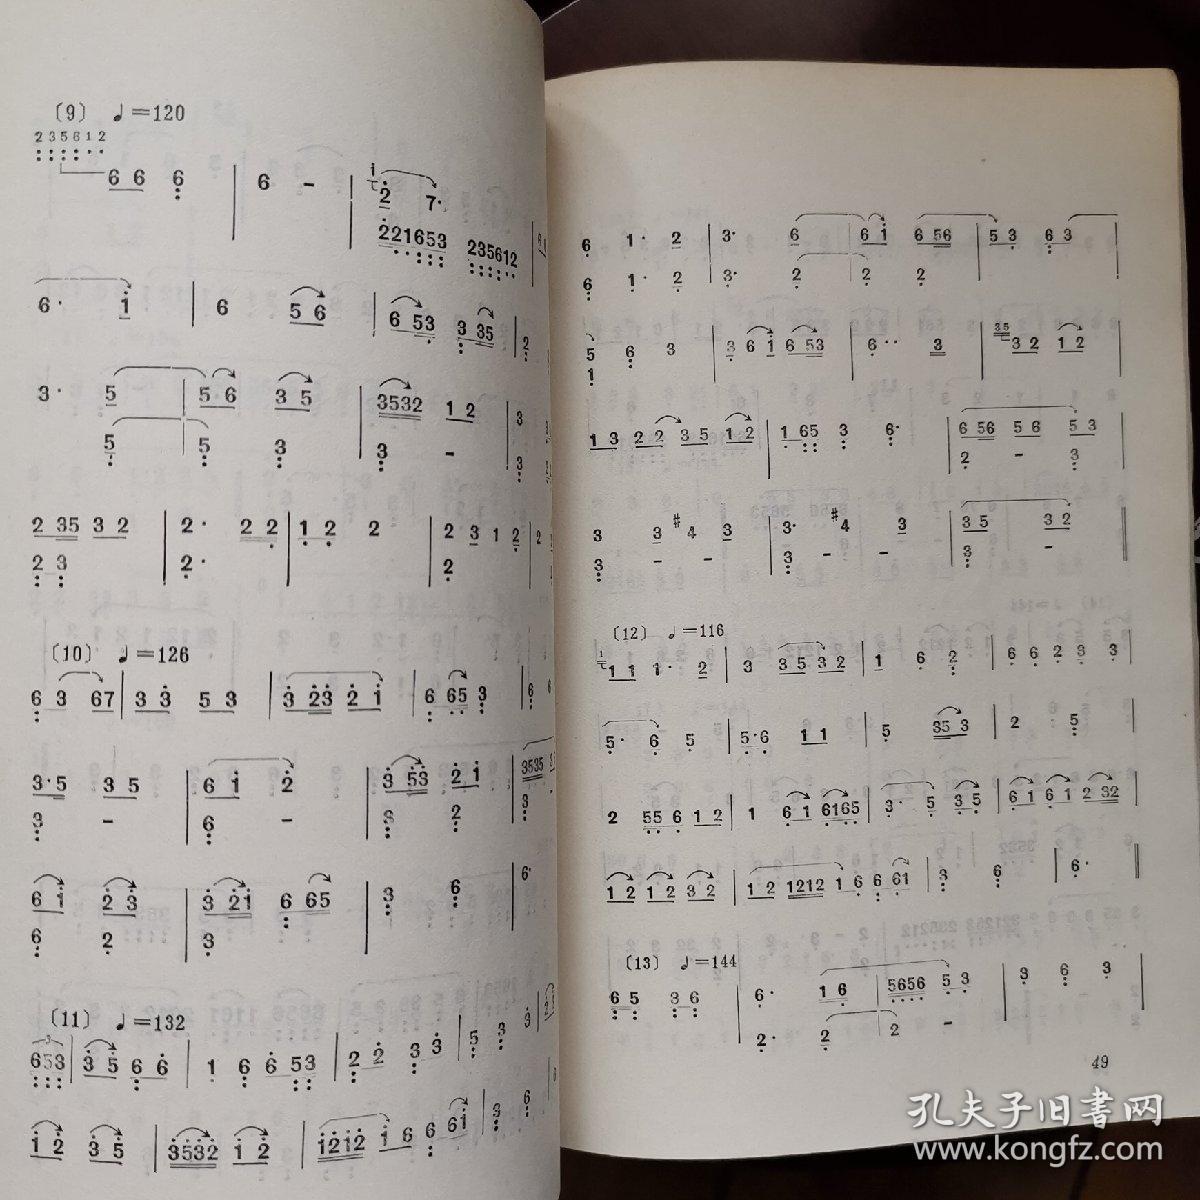 〔9〕 ♩=120
2 3 5 6 1 2
6 6 6 | 6 - | 2 7·
221653 235612
6· 1 | 6 5 6 | 6 53 3 35 | 2
3· 5 | 5 6 3 5 | 3532 1 2 | 3
5 | 5 3 | 3 - | 3
2 35 3 2 | 2· 2 2 | 1 2 2 | 2 3 1 2 | 2
2 3 | 2· | | 2
〔10〕 ♩=126
6 3 67 | 3 3 5 3 | 3 23 2 1 | 6 65 3 | 6 6
3·5 3 5 | 6 1 2 | 3 53 2 1 | 3535
3 - | 6 - | 3 2 | 3
6 1 2 3 | 3 21 6 65 | 3 6 | 6·
6 2 | 3
〔11〕 ♩=132
653 | 3 5 6 6 | 1 6 6 53 | 2 2 3 3 | 5 3 3
1 2 3 5 | 3532 1 2 | 1212 1 6 6 61 | 3 6
6 1· 2 | 3· 6 | 6 1 6 56 | 5 3 6 3
6 1· 2 | 3· 2 | 2 2
5 6 3 | 3 6 1 6 53 | 6·· 3 | 35 3 2 1 2
1
1 3 2 2 3 5 1 2 | 1 65 3 6· | 6 56 5 6 5 3
2 - 3
3 3 #4 3 | 3· #4 3 | 3 5 3 2
3 - - | 3 - - | 3 -
〔12〕 ♩=116
1 1 1· 2 | 3 3 5 3 2 | 1 6 2 | 6 6 2 3 3
5· 6 5 | 5·6 1 1 | 5 35 3 | 2 5
2 55 6 1 2 | 1 6 1 6165 | 3· 5 3 5 | 6 1 6 1 2 32
1 2 1 2 3 2 | 1 2 1212 1 6 6 61 | 3 6 | 6·
〔13〕 ♩=144
6 5 3 6 | 6· 1 6 | 5656 5 3 | 3 6 3
2· 2 | 2 -
49
孔夫子旧书网
www.kongfz.com